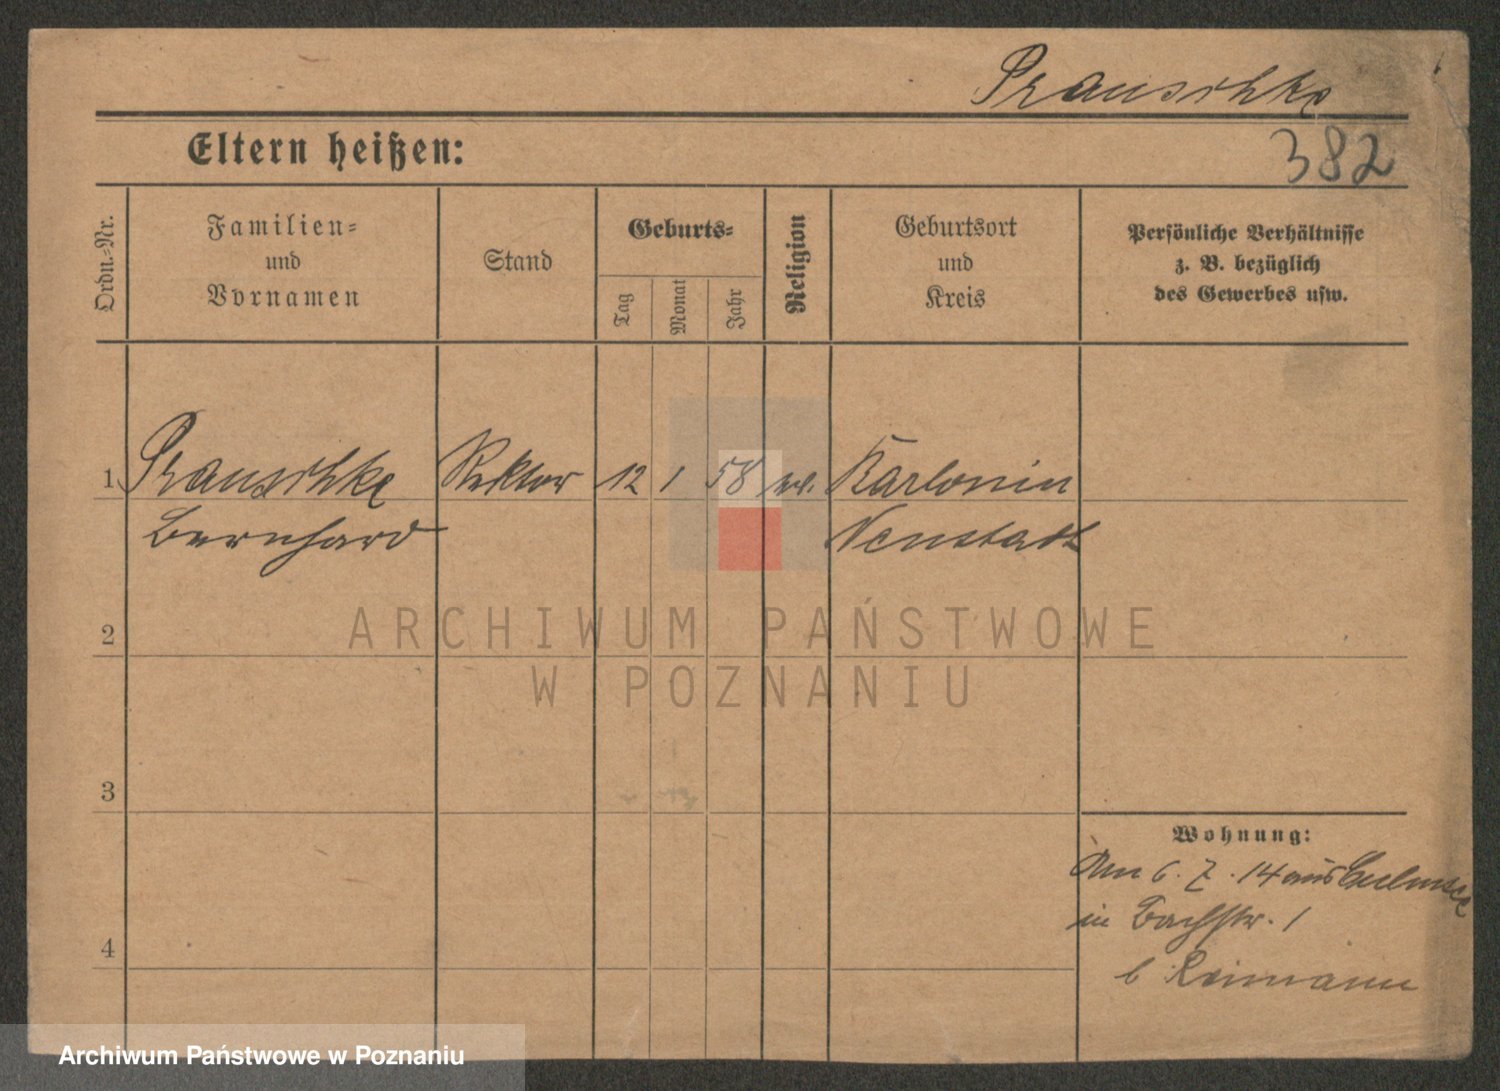 Prauschke
382
Eltern heißen:
Ordn.-Nr.
Familien-
und
Vornamen
Stand
Geburts-
Tag
Monat
Jahr
Religion
Geburtsort
und
Kreis
Persönliche Verhältnisse
z. B. bezüglich
des Gewerbes usw.
1 Prauschke Rektor 12 1 58 ev. Karlonin
Bernhard Neustadt
2
3
Wohnung:
Am 6. 7. 14 aus Culmsee
in Bachstr. 1
4
b Reimann
ARCHIWUM PAŃSTWOWE
W POZNANIU
Archiwum Państwowe w Poznaniu